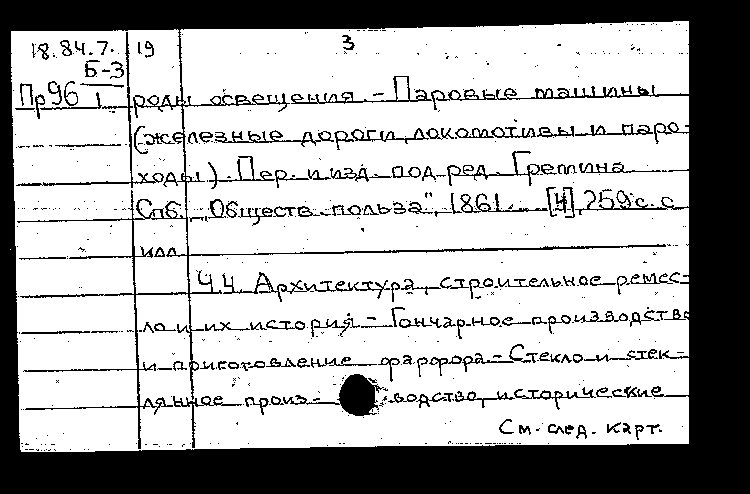 18.84.7. 19 3
Б-3
Пр96 1 роды освещения. - Паровые машины
(железные дороги, локомотивы и паро-
ходы). Пер. и изд. под ред. Гретина
Спб. "Обществ. польза", 1861. [4], 259 с. с
илл.
Ч.4. Архитектура, строительное ремес-
ло и их история - Гончарное производство
и приготовление фарфора. - Стекло и стек-
лянное произ- водство, исторические
См. след. карт.